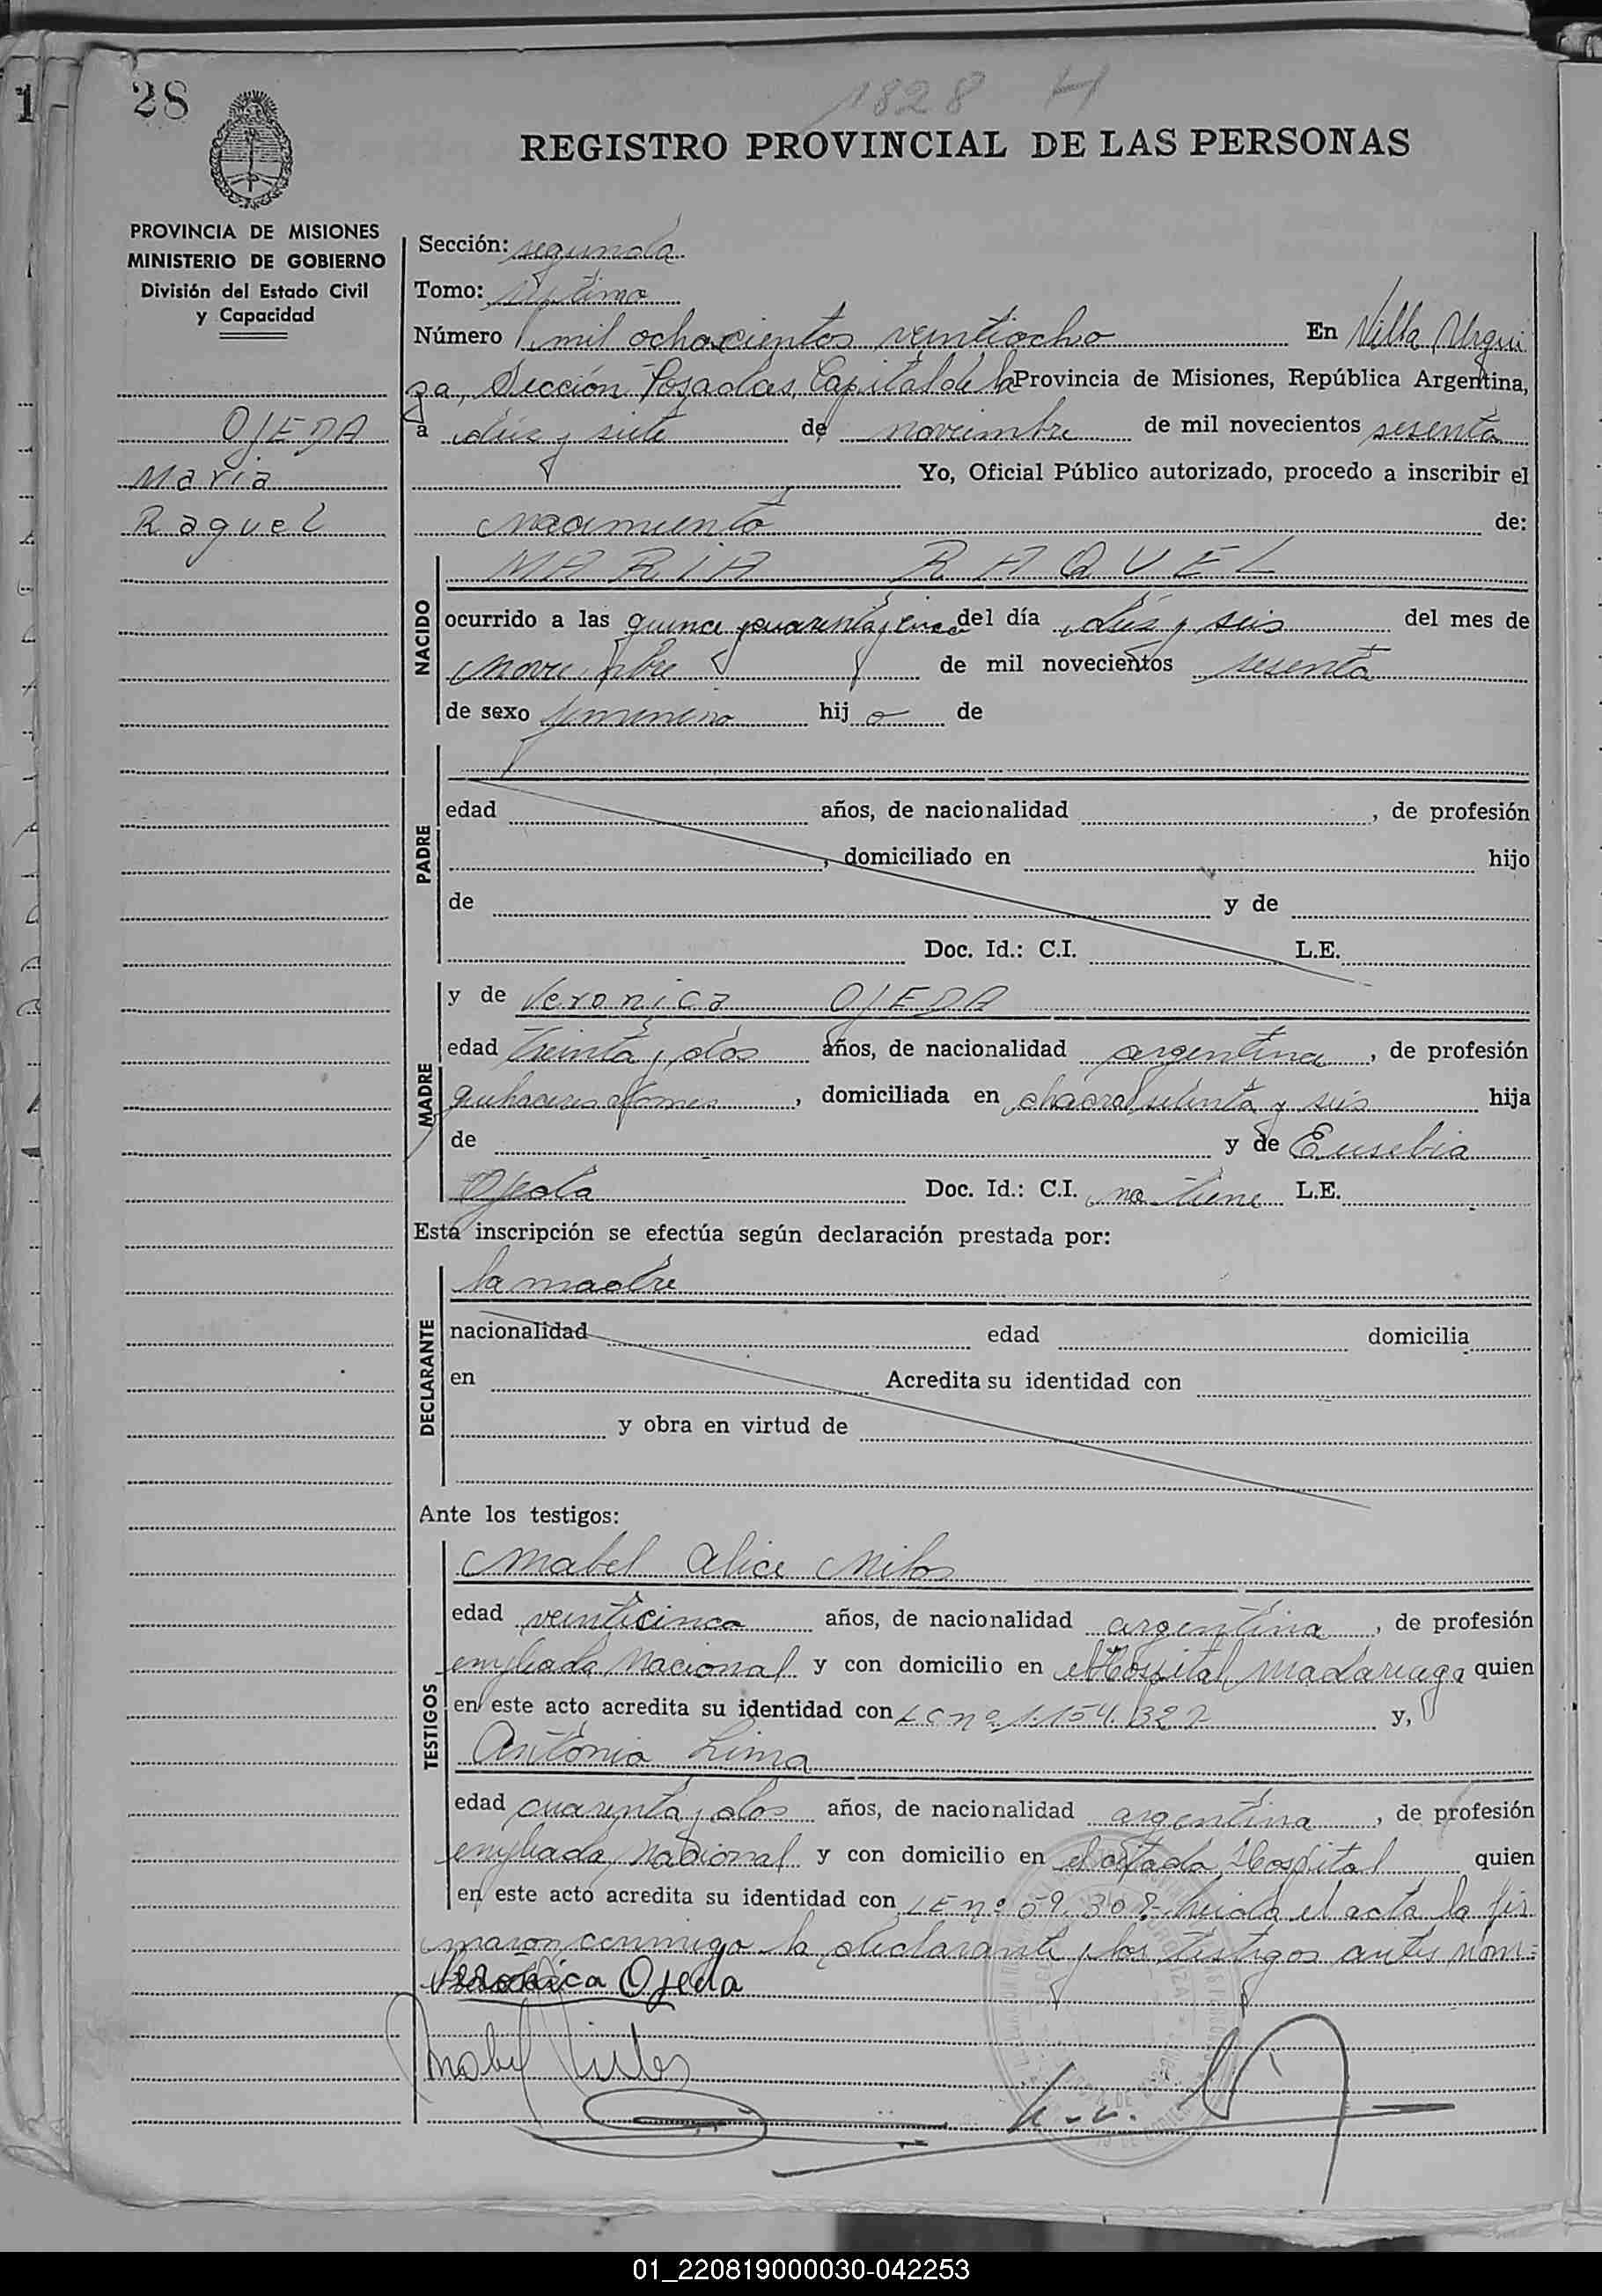 1
28
1828 H
REGISTRO PROVINCIAL DE LAS PERSONAS
PROVINCIA DE MISIONES
MINISTERIO DE GOBIERNO
División del Estado Civil
y Capacidad
OJEDA
Maria
Raquel
Sección: segunda
Tomo: séptimo
Número mil ochocientos veintiocho En Villa Urqui
za, Sección Posadas, Capital de la Provincia de Misiones, República Argentina,
a diez y siete de noviembre de mil novecientos sesenta
Yo, Oficial Público autorizado, procedo a inscribir el
nacimiento de:
NACIDO
MARIA RAQUEL
ocurrido a las quince y cuarenta y cinco del día diez y seis del mes de
noviembre de mil novecientos sesenta
de sexo femenino hij o de
PADRE
edad años, de nacionalidad , de profesión
, domiciliado en hijo
de y de
Doc. Id.: C.I. L.E.
MADRE
y de Veronica OJEDA
edad treinta y dos años, de nacionalidad argentina, de profesión
quehaceres domes, domiciliada en chacra setenta y seis hija
de y de Eusebia
Ojeda Doc. Id.: C.I. no tiene L.E.
Esta inscripción se efectúa según declaración prestada por:
DECLARANTE
la madre
nacionalidad edad domicilia
en Acredita su identidad con
y obra en virtud de
Ante los testigos:
TESTIGOS
Mabel Alice
edad veinticinco años, de nacionalidad argentina, de profesión
empleada Nacional y con domicilio en el Hospital Madariaga quien
en este acto acredita su identidad con LC nº 1.154.327 y,
Antonio Lima
edad cuarenta y dos años, de nacionalidad argentina, de profesión
empleada Nacional y con domicilio en el citado Hospital quien
en este acto acredita su identidad con LE nº 59.308.- Leida el acta la fir
maron conmigo la declarante y los testigos antes nom=
Veronica Ojeda
Mabel
01_220819000030-042253